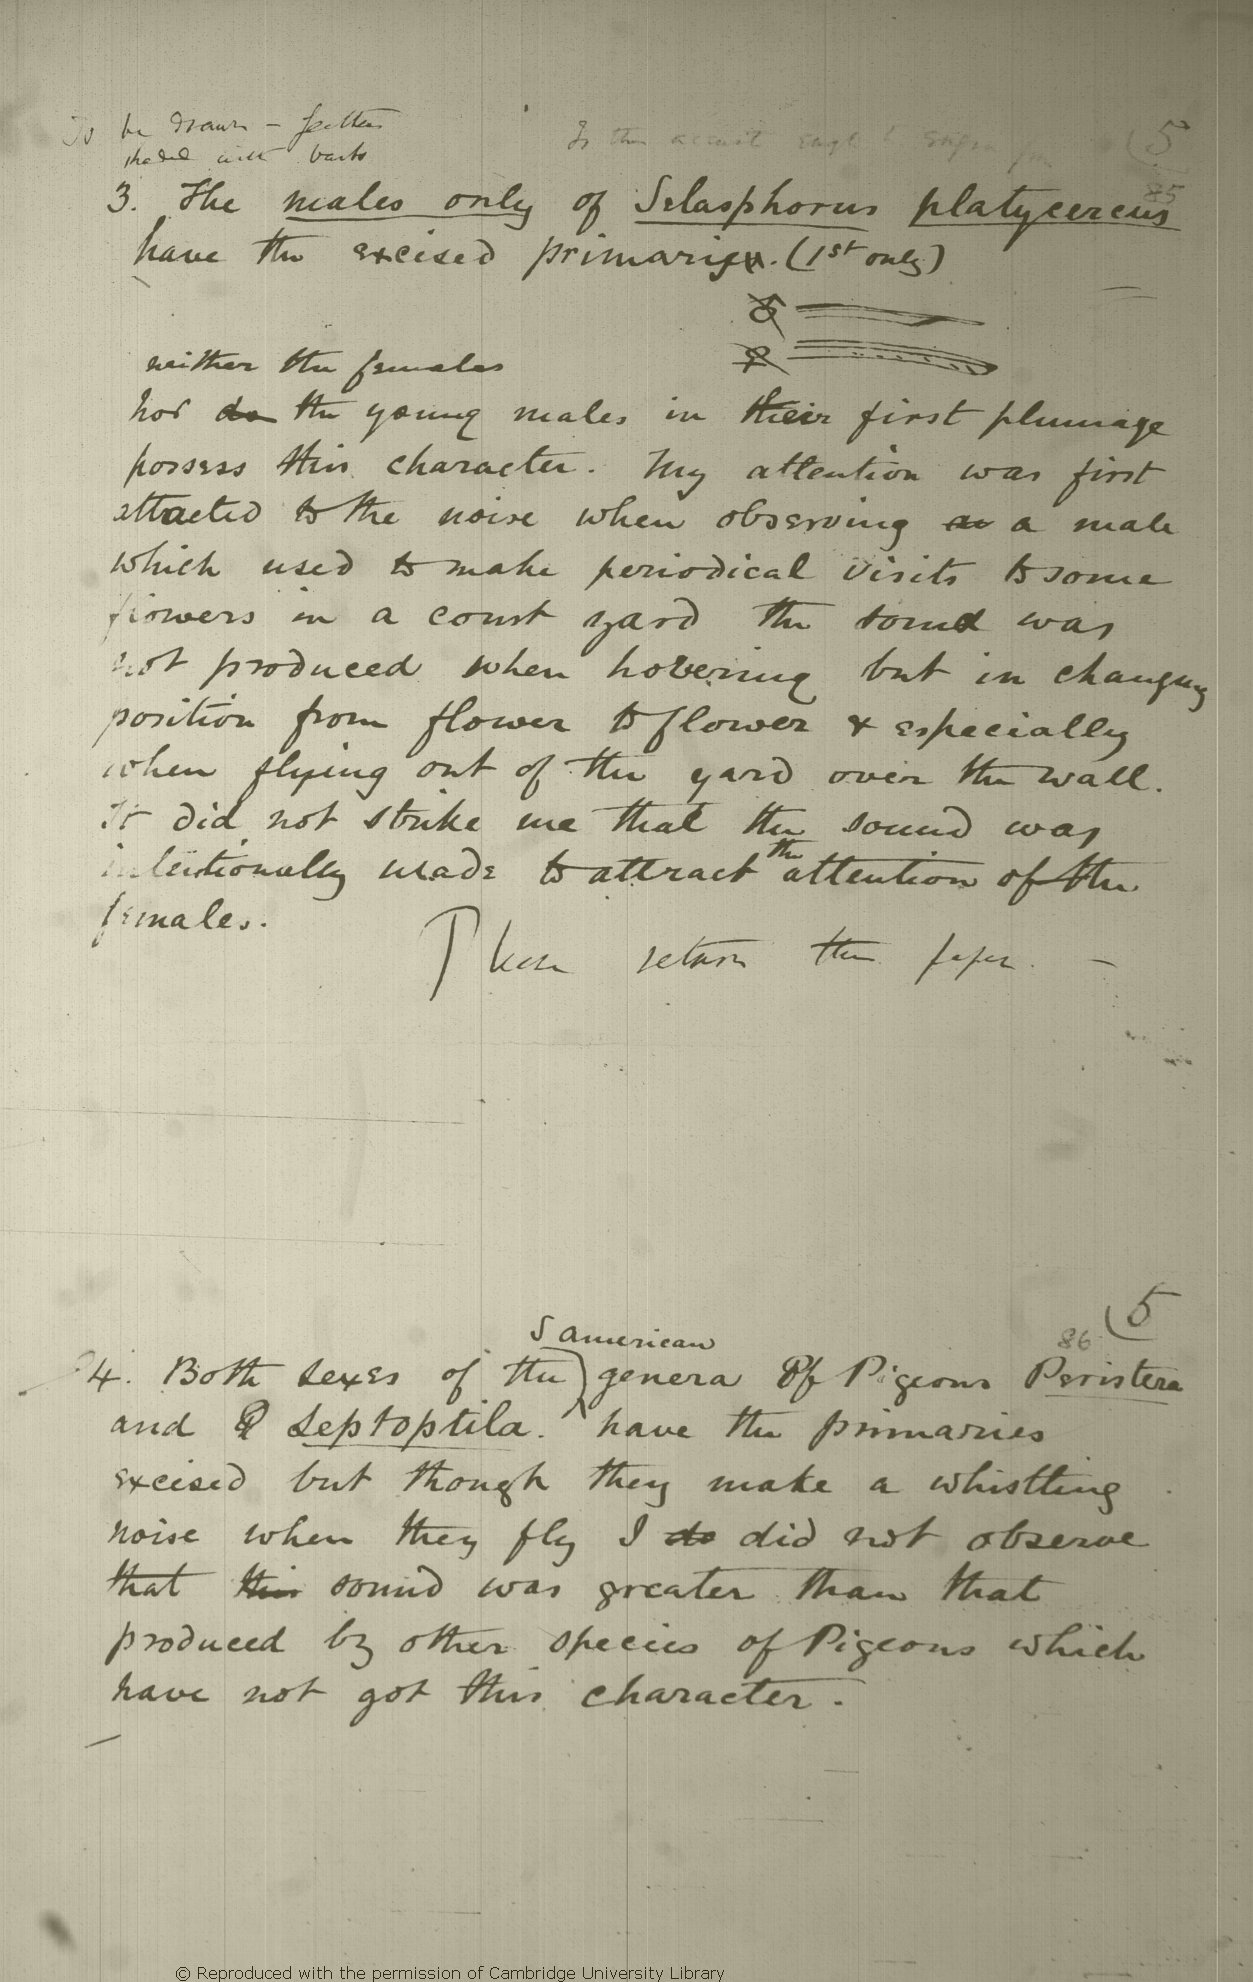 To be drawn – feathers
shaded with barbs
(5
85
3. The males only of Selasphorus platycercus
have the excised primaries. (1st only)
♂
♀
neither the females
nor do the young males in their first plumage
possess this character. My attention was first
attracted to the noise when observing a male
which used to make periodical visits to some
flowers in a court yard the sound was
not produced when hovering but in changing
position from flower to flower & especially
when flying out of the yard over the wall.
It did not strike me that the sound was
intentionally made to attract the attention of the
females.
Please return this paper. –
(5
86
S American
4. Both sexes of the genera Of Pigeons Peristera
and Leptoptila. have the primaries
excised but though they make a whistling
noise when they fly I do did not observe
that this sound was greater than that
produced by other species of Pigeons which
have not got this character.
© Reproduced with the permission of Cambridge University Library